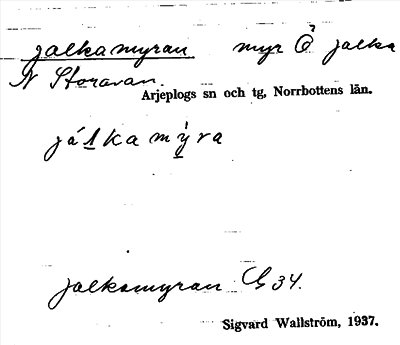 Jalkamyran myr Ö Jalka
N Storavan.
Arjeplogs sn och tg, Norrbottens län.
jálkamỳra
Jalkamyran G 34.
Sigvard Wallström, 1937.